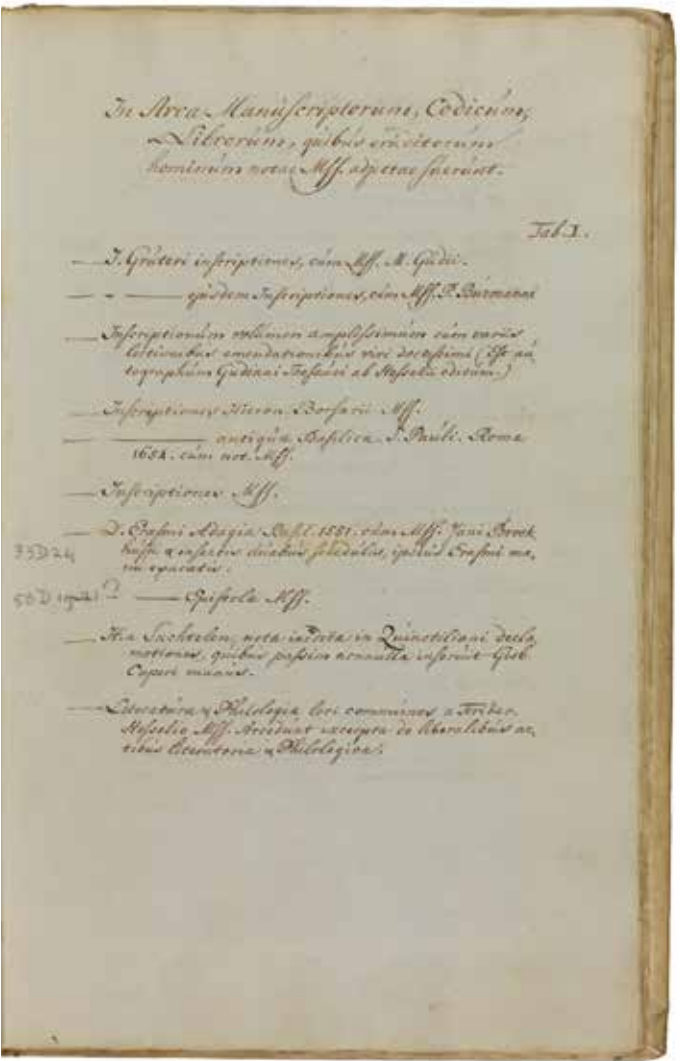 In Arca Manuscriptorum, Codicum,
Librorum, quibus eruditorum
hominum notae Mss. adjectae fuerunt.
Tab. I.
— J. Gruteri inscriptiones, cum Mss. M. Gudii.
— - — ejusdem Inscriptiones, cum Mss. P. Burmanni
— Inscriptionum volumen amplissimum cum variis
lectionibus emendationibus viri doctissimi (Est au,
tographum Gudiani Thesauri ab Hesselio editum.)
— Inscriptiones Hieron. Bossarii Mss.
— — antiqua Basilica S. Pauli. Roma
1654. cum not. Mss.
— Inscriptiones Mss.
— D. Erasmi Adagia Basil. 1551. cum Mss. Jani Broek
husii & insertis duabus schedulis, ipsius Erasmi ma,
nu exaratis.
33D24
50D ?
— Epistola Mss.
— Suchtelen, nota inedita in Quinctiliani decla
mationes, quibus passim nonnulla inseruit Gisb.
Cuperi manus.
— Literatura & Philologia loci communes a Frider.
Hesselio Mss. Accedunt excerpta de liberalibus ar,
tibus literatoria & Philologica.